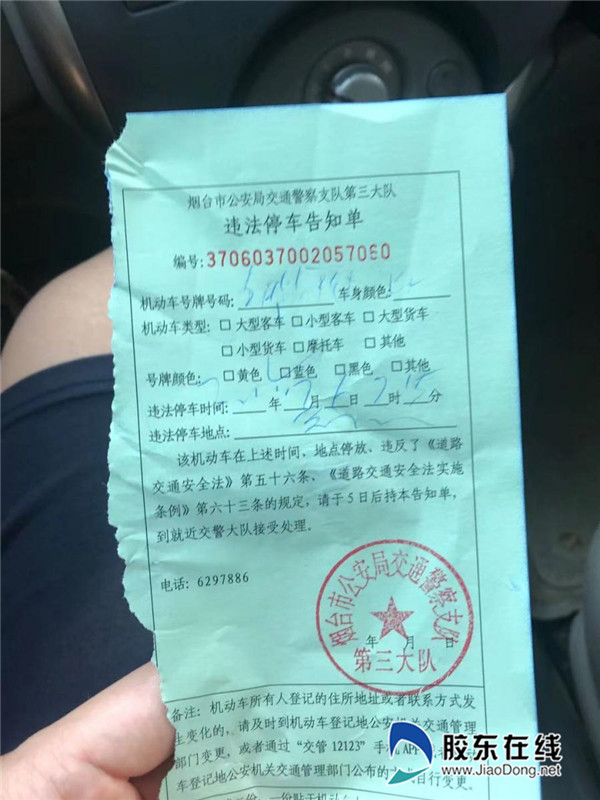 烟台市公安局交通警察支队第三大队
违法停车告知单
编号:3706037002057060
机动车号牌号码: 车身颜色:
机动车类型: □ 大型客车 □ 小型客车 □ 大型货车
□ 小型货车 □ 摩托车 □ 其他
号牌颜色: □黄色 □蓝色 □黑色 □其他
违法停车时间: 年 月 日 时 分
违法停车地点:
该机动车在上述时间、地点停放、违反了《道路
交通安全法》第五十六条、《道路交通安全法实施
条例》第六十三条的规定,请于5日后持本告知单,
到就近交警大队接受处理。
电话: 6297886
烟台市公安局交通警察支队
年 月 日
第三大队
备注: 机动车所有人登记的住所地址或者联系方式发
生变化的,请及时到机动车登记地公安机关交通管理
部门变更,或者通过“交管 12123”手机APP
车登记地公安机关交通管理部门公布的方式自行变更。
份,一份贴于机动
胶东在线
www.JiaoDong.net